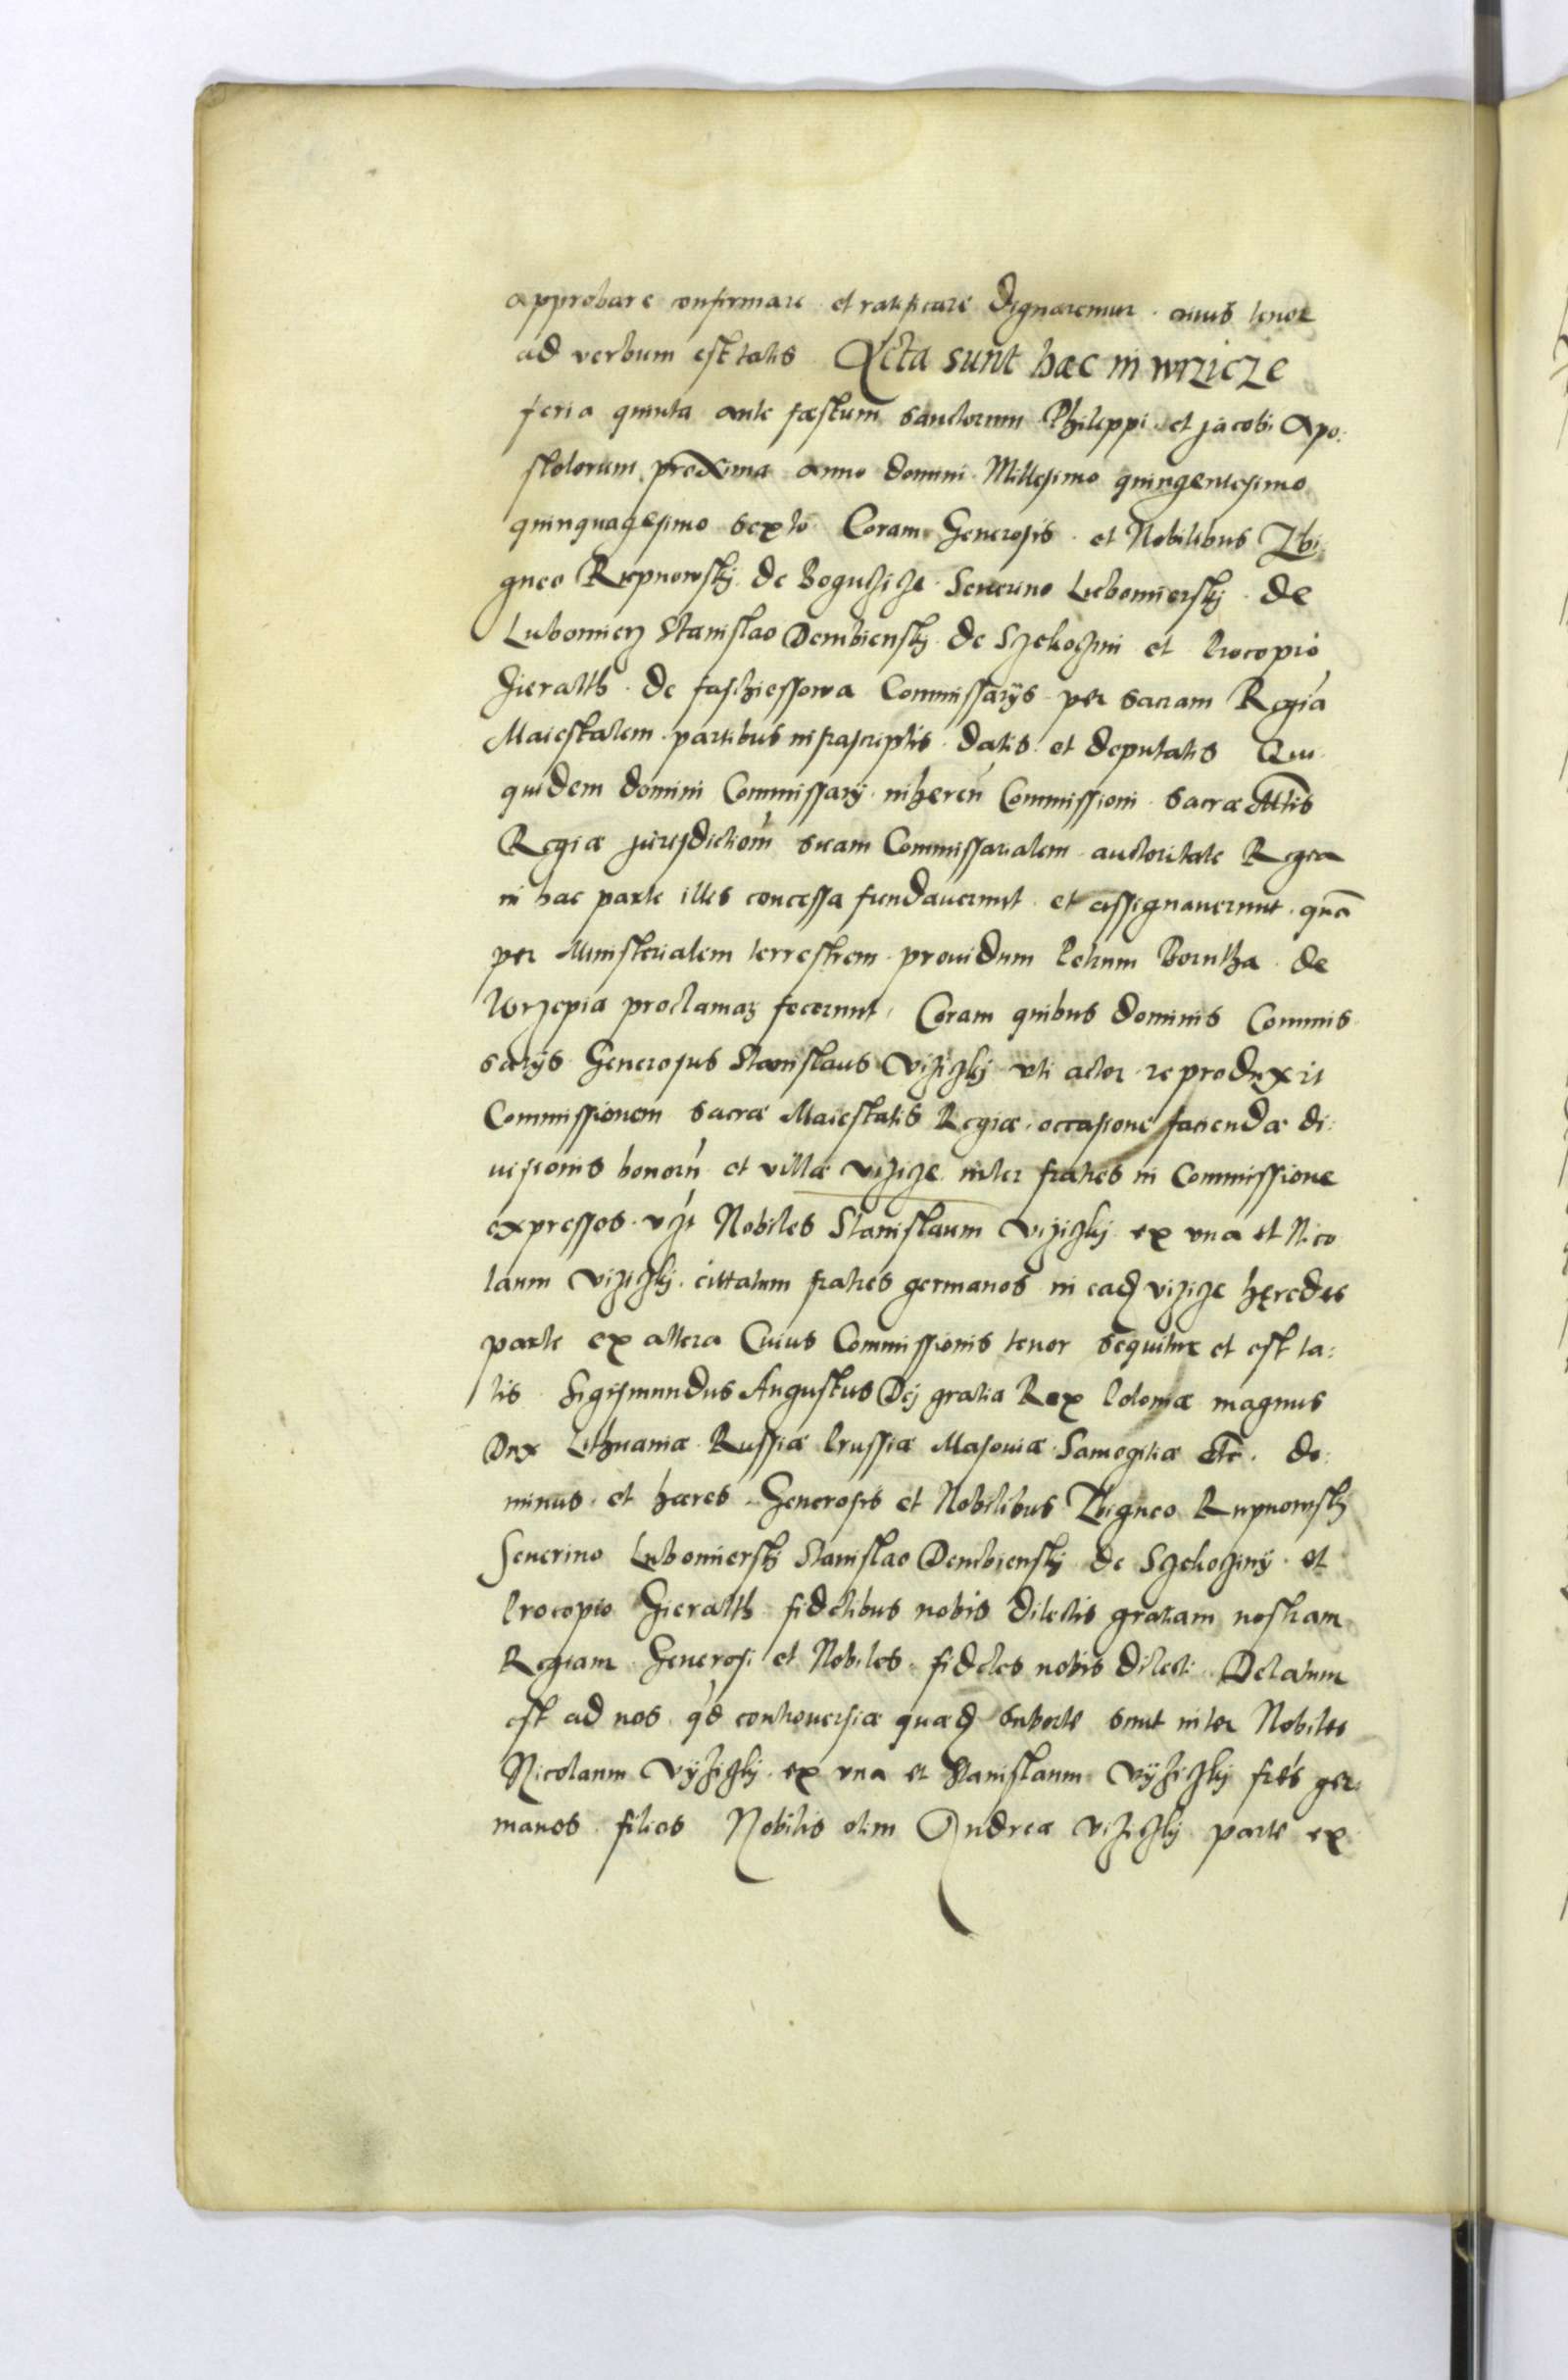 approbare confirmare et ratificare dignaremur. cuius tenor
ad verbum est talis Acta sunt hæc in wrzicze
feria quinta ante fæstum sanctorum Philippi et jacobi Apo:
stolorum proxima anno domini Millesimo quingentesimo
quinquagesimo sexto Coram Generosis et Nobilibus Zbi:
gneo Rupnowskj de Boguczicze Seuerino Lubomierskj de
Lubomierz Stanislao Dembienskj de Szekoczini et Procopio
Zieralth de Commissarijs per sacram Regiā
Maiestatem partibus infrascriptis datis et deputatis Qui
quidem domini Commissarij inheren̄ Commissioni sacræ Mtis
Regiæ jurisdictiom̄ suam Commissarialem auctoritate Regea
in hac parte illis concessa fundaverunt et assignaverunt quā
per Ministerialem terrestrem providum Petrum de
Wrzepia proclamarj fecerunt, Coram quibus dominis Commis
sarijs Generosus Stanislaus Vizickj uti actor reproduxit
Commissionem sacræ Maiestatis Regiæ occasione faciendæ di:
uisionis bonorū et villæ vizicze inter fratres in Commissione
expressos vzt Nobiles Stanislaum Vizickj ex una et Nico
laum Vizickj cittatum fratres germanos in eadꝫ vizicze hęredes
parte ex altera Cuius Commissionis tenor sequitur et est ta:
lis Sigismundus Augustus Dej gratia Rex Poloniæ magnus
Dux Lithuaniæ Russiæ Prussiæ Masoviæ Samogitiæ etc. do:
minus et hæres Generosis et Nobilibus Zbigneo Rupnowskj
Seuerino Lubomierskj Stanislao Dembienskj de Szekocziny et
Procopio Zieralth fidelibus nobis dilectis gratiam nostram
Regiam Generosi et Nobiles fideles nobis dilecti Delatum
est ad nos qd controversiæ quædꝫ subortę sunt inter Nobiles
Nicolaum Vÿzickj ex una et Stanislaum Vÿzickj frēs ger:
manos filios Nobilis olim Andreæ Vizickj parte ex